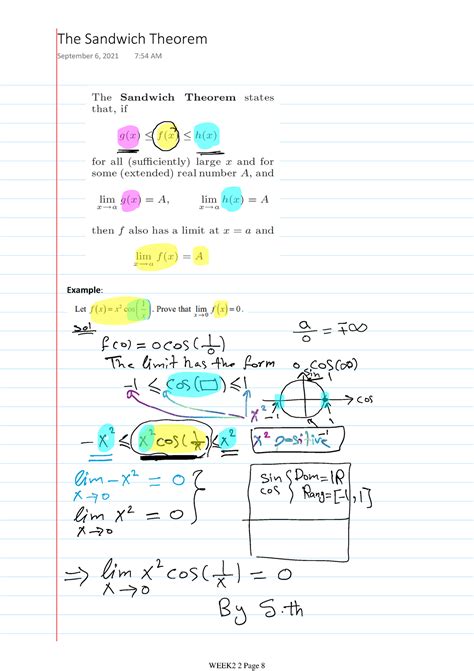 The Sandwich Theorem
September 6, 2021 7:54 AM
The Sandwich Theorem states
that, if
g(x) ≤ f(x) ≤ h(x)
for all (sufficiently) large x and for
some (extended) real number A, and
lim g(x) = A, lim h(x) = A
x→a x→a
then f also has a limit at x = a and
lim f(x) = A
x→a
Example:
Let f(x) = x² cos(1/x). Prove that lim x→0 f(x) = 0.
sol
a/0 = ∓∞
f(0) = 0 cos(1/0)
The limit has the form 0. cos(∞)
sin 1
-1 ≤ cos(□) ≤ 1
→ cos
x²
-1
-x² ≤ x² cos(1/x) ≤ x² x² positive
lim -x² = 0 }
x→0
sin { Dom = IR
cos Rang = [-1, 1]
lim x² = 0 }
x→0
⇒ lim x² cos(1/x) = 0
x→0
By S.th
WEEK2 2 Page 8